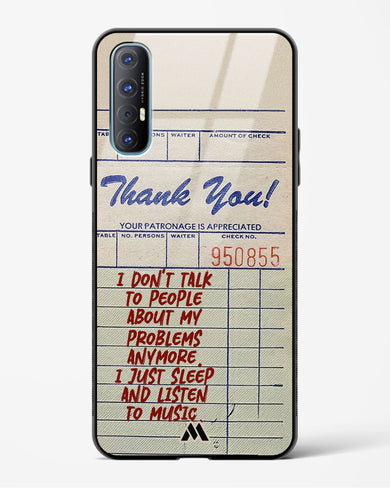 NS WAITER AMOUNT OF CHECK
Thank You!
YOUR PATRONAGE IS APPRECIATED
TABLE NO. PERSONS WAITER CHECK NO.
950855
I DON'T TALK
TO PEOPLE
ABOUT MY
PROBLEMS
ANYMORE.
I JUST SLEEP
AND LISTEN
TO MUSIC